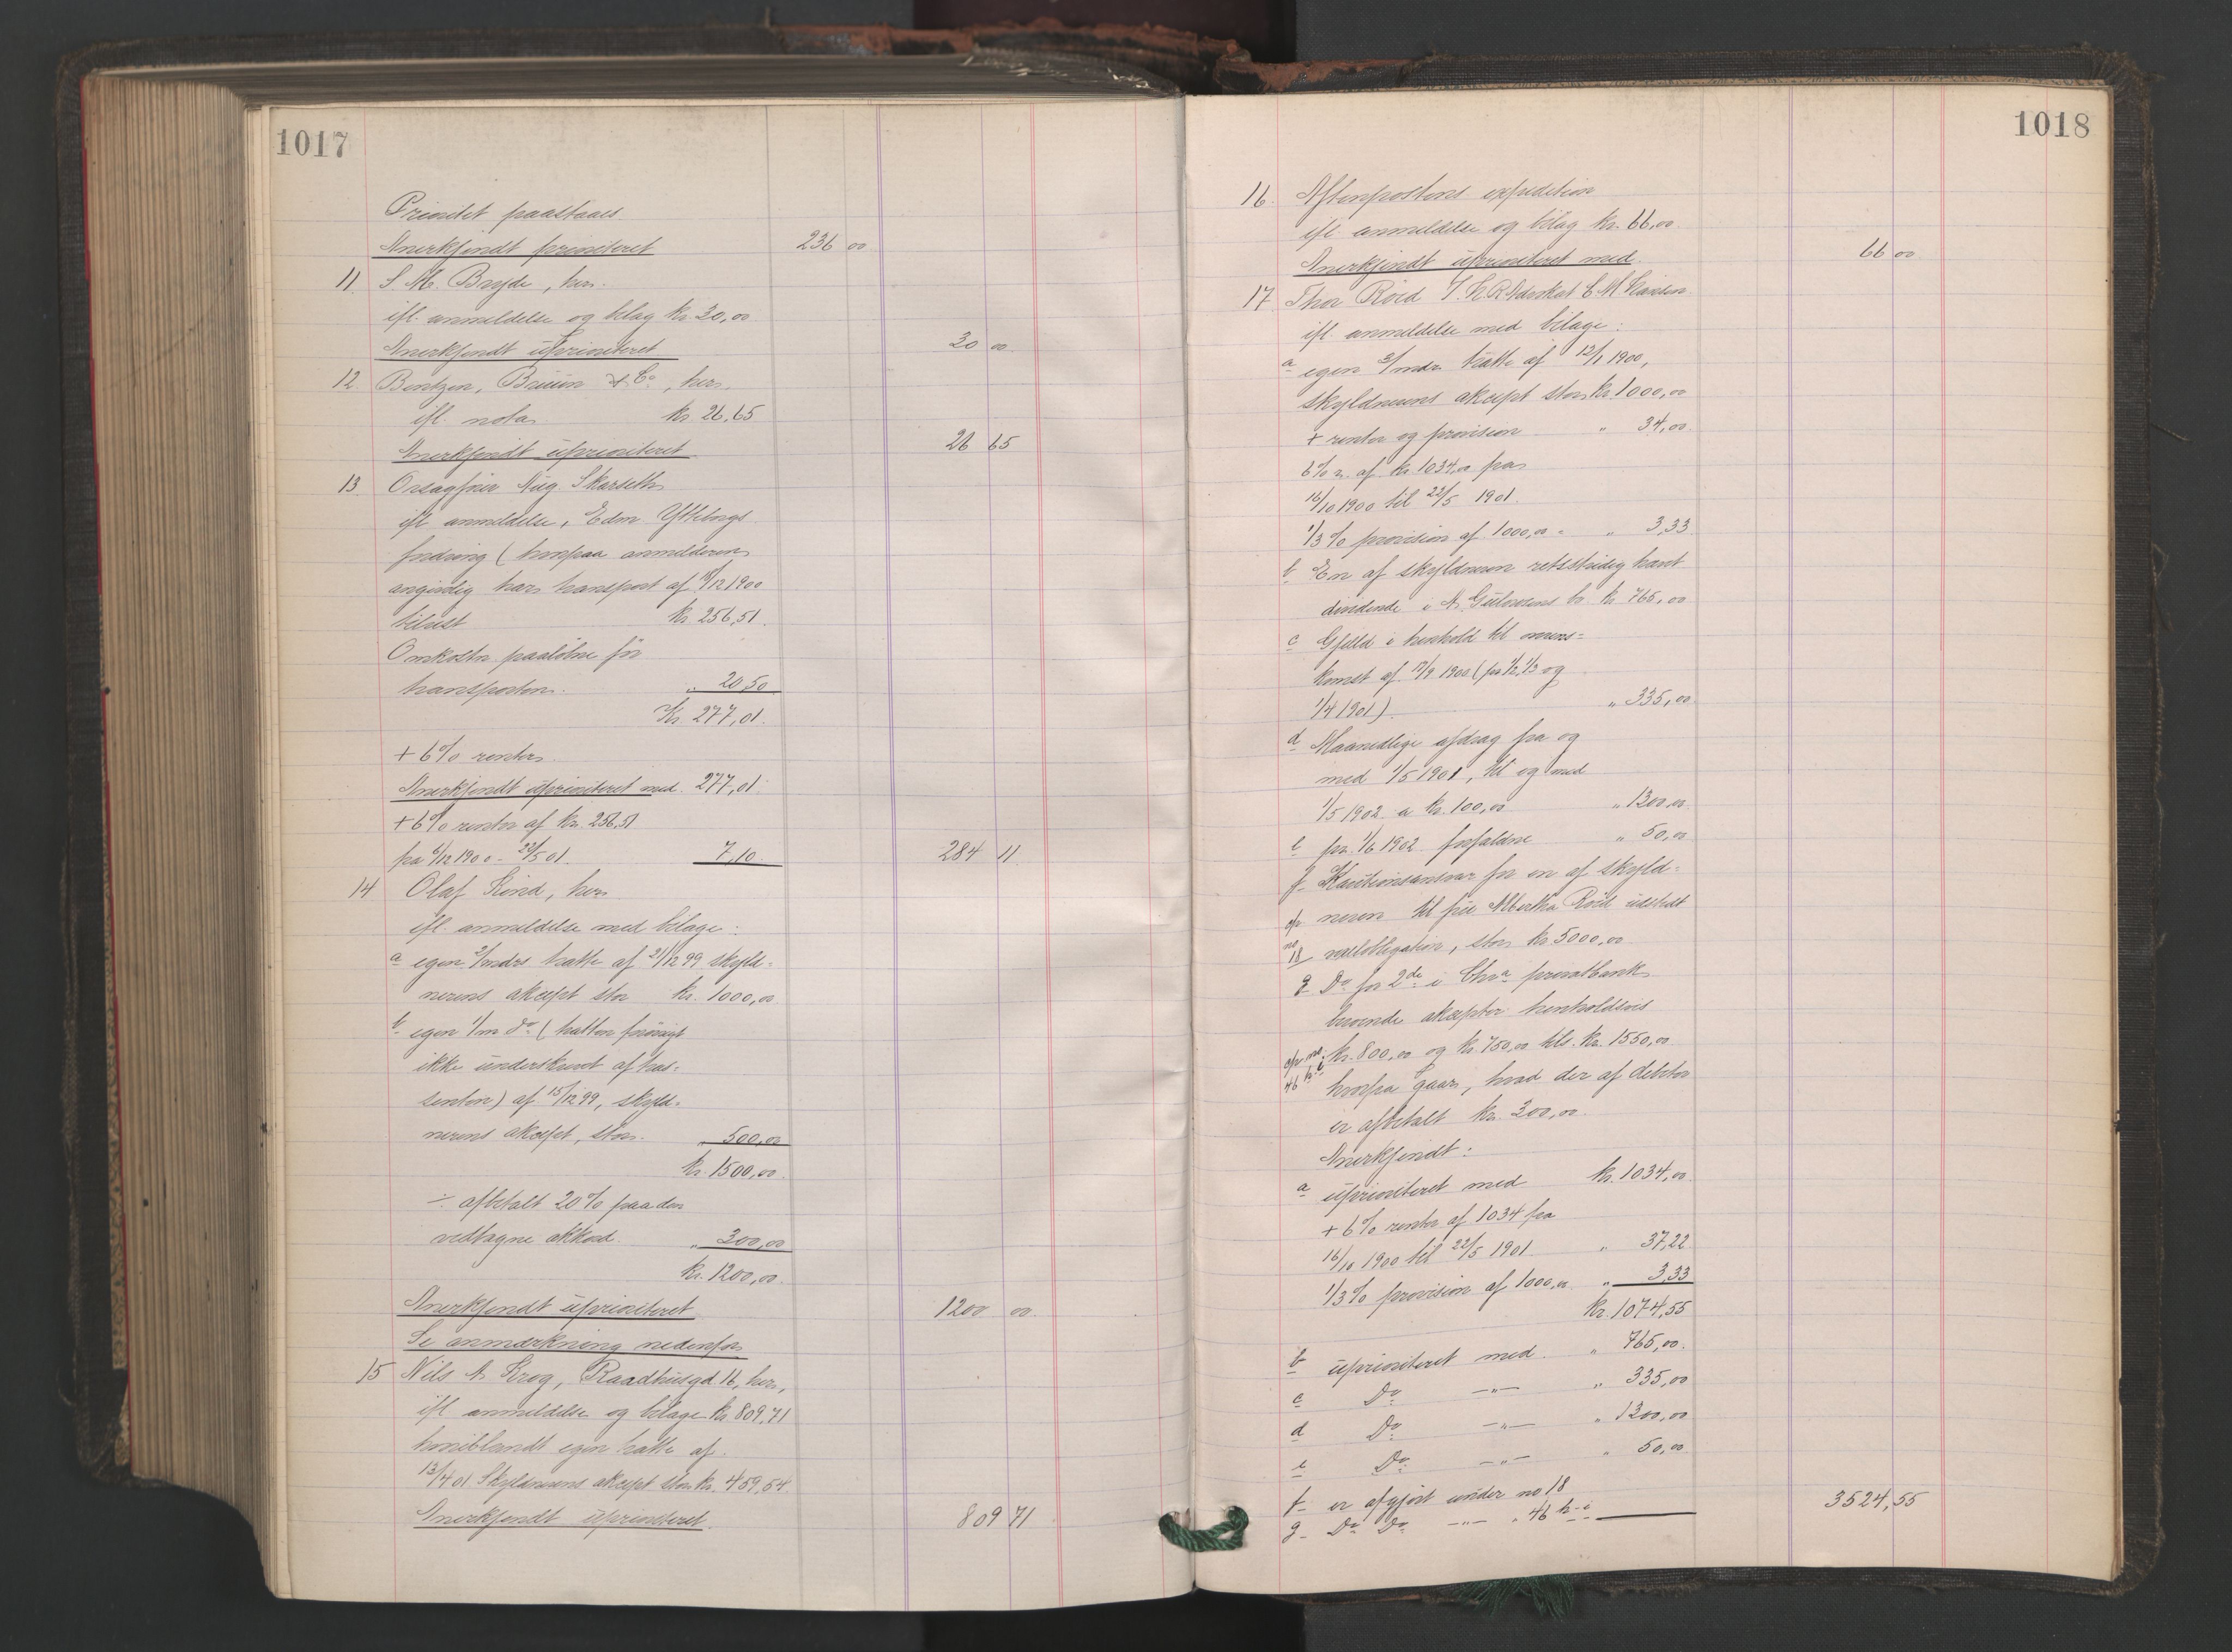 1017
Prioritet paastaaes
Anerkjendt prioriteret 236 00
11 S. M. Bryde, her.
ifl. anmeldelse og bilag kr. 30,00
Anerkjendt uprioriteret 30 00
12 Bentzen, Bruun & Co, her.
ifl. nota. kr. 26,65
Anerkjendt uprioriteret 26 65
13 Orsagfører Aug. Skarseth
ifl anmeldelse, Edm. Yttebergs
fordring (hvorpaa anmelderen
angivelig har transport af /12 1900
tilsist kr. 256,51.
Omkostn. paaløbne før
transporten. „ 20,50
Kr. 277,01.
+ 6% renter.
Anerkjendt uprioriteret med 277,01.
+ 6% renter af kr. 256,51
fra 6/12 1900 - 22/5 01. 7,10 284 11
14 Olaf Rind, her
ifl. anmeldelse med bilage:
a egen 2/mdrs tratte af 21/12 99 skyld-
nerens akcept stor kr. 1000,00
b egen 1/m do (tratten forøvrigt
ikke underskrevet af tras-
senten) af 15/12 99, skyld-
nerens akcept, stor. „ 500,00
kr. 1500,00.
÷ afbetalt 20% paa den
vedtagne akkord. „ 300,00
kr. 1200,00.
Anerkjendt uprioriteret 1200 00.
Se anmærkning nedenfor
15 Nils A. Krog, Raadhusgd 16, her,
ifl anmeldelse og bilage kr. 809,71
hvoriblandt egen tratte af.
13/4 01 Skyldnerens akcept stor kr. 459,54.
Anerkjendt uprioriteret. 809 71
1018
16. Aftenpostens expedition
ifl. anmeldelse og bilag kr. 66,00
Anerkjendt uprioriteret med. 66 00
17 Thor Röed v. H.R. Advokat C M Hansen
ifl. anmeldelse med bilage:
a egen 3/mdr. tratte af 12/1 1900,
skyldnerens akcept stor kr. 1000,00
+ renter og provision „ 34,00.
6% r. af kr. 1034,00 fra
16/10 1900 til 22/5 1901.
1/3% provision af 1000,00 = „ 3,33
b En af skyldneren retsstridig hævt
dividende i A. Gulowsens bo kr. 765,00
c Gjæld i henhold til overens-
komst af /9 1900 (pr 1/2, 1/3 og
1/4 1901). „ 335,00
d Maanedlige afdrag fra og
med 1/5 1901, til og med
1/5 1902 a kr. 100,00 „ 1300,00.
e pr. 1/6 1902 forfaldne „ 50,00
f Kautionsansvar for en af skyld-
ofr neren til frk Albertha Röed udstedt
no 18 vexelobligation, stor kr 5000,00
g Do for 2de i Chra privatbank
beroende akcepter henholdsvis
ofr no. kr. 800,00 og kr. 750,00 tils. kr. 1550,00
46 hvorfra gaar, hvad der af debitor
er afbetalt kr. 300,00.
Anerkjendt:
a uprioriteret med kr. 1034,00
+ 6% renter af 1034 fra
16/10 1900 til 22/5 1901 „ 37,22
1/3% provision af 1000,00 „ 3,33
kr. 1074,55
b uprioriteret med „ 765,00.
c Do —„— „ 335,00
d Do —„— „ 1300,00
e Do —„— „ 50,00
f er afgjort under no 18
g Do Do —„— „ 46 3524,55